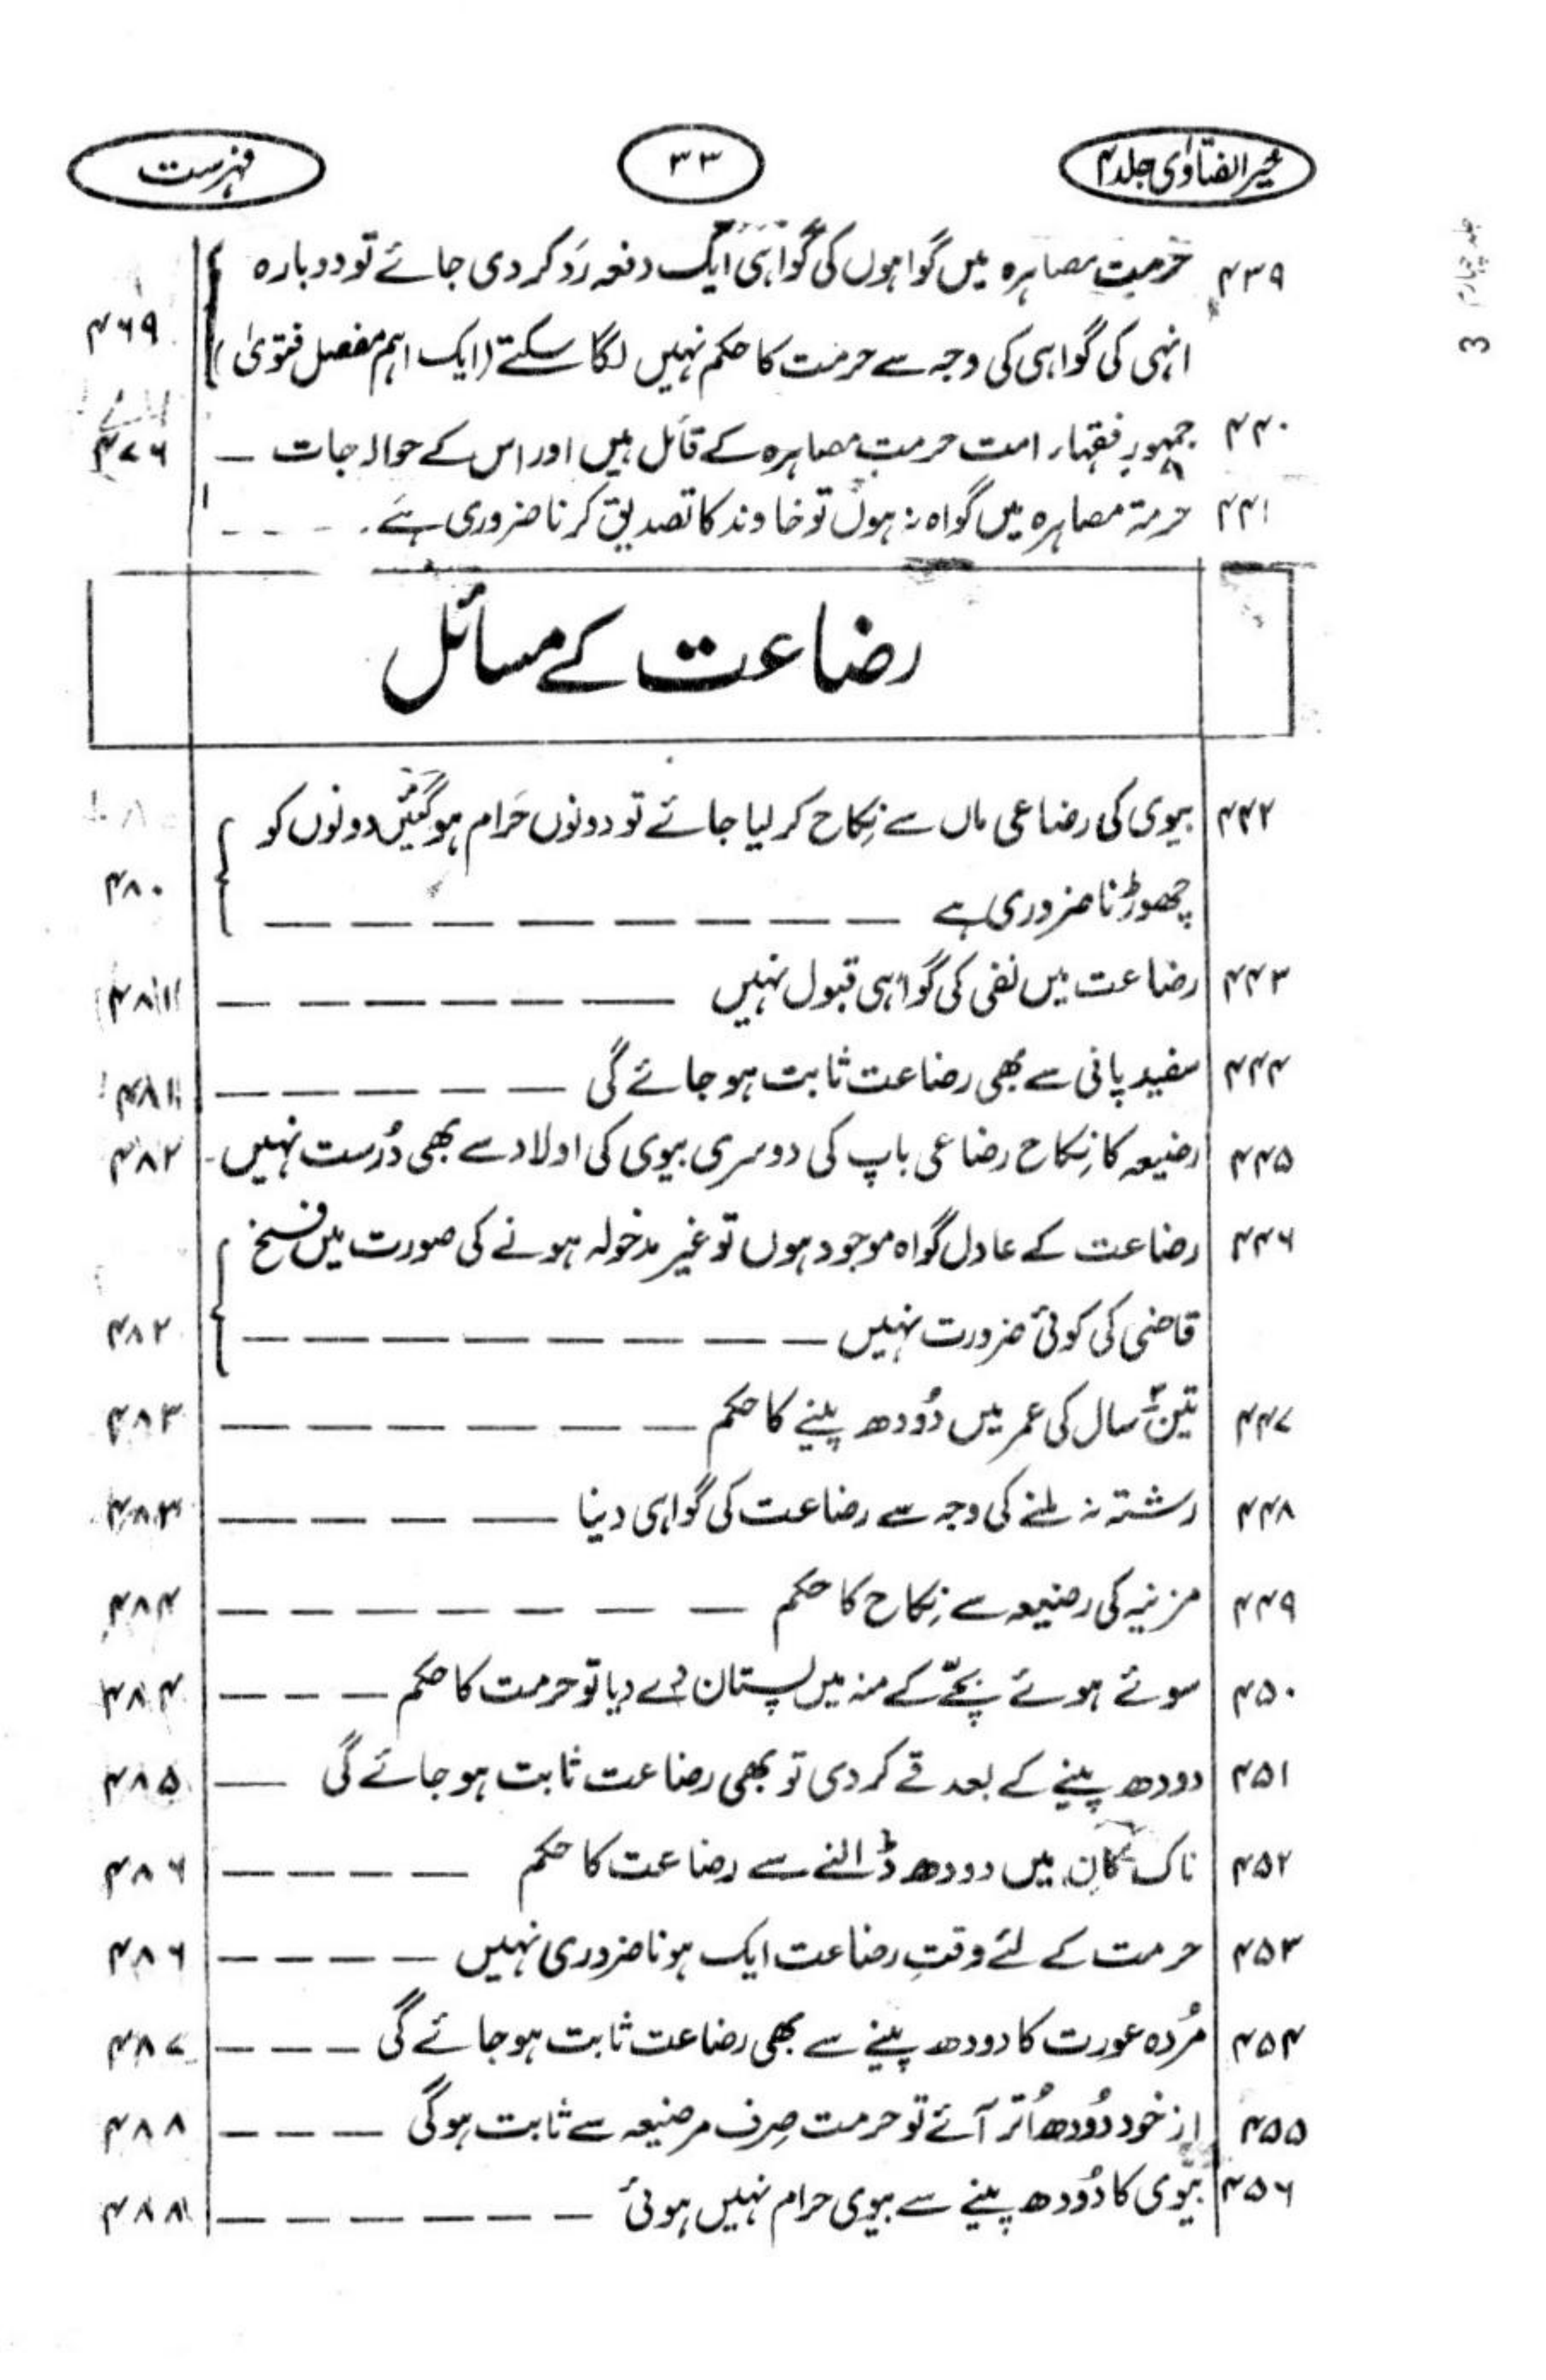 خیر الفتاوٰی جلد ۴
۳۳
فہرست
جلد چہارم 3
۴۳۹ حرمت مصاہرہ میں گواہوں کی گواہی ایک دفعہ رَد کر دی جائے تو دوبارہ
انہی کی گواہی کی وجہ سے حرمت کا حکم نہیں لگا سکتے (ایک اہم مفصل فتویٰ) ۴۶۹
۴۴۰ جمہور فقہاء امت حرمتِ مصاہرہ کے قائل ہیں اور اس کے حوالہ جات ـ ۴۷۶
۴۴۱ حرمۃ مصاہرہ میں گواہ نہ ہوں تو خاوند کا تصدیق کرنا ضروری ہے ۔ ـ ـ ـ ـ
رضاعت کے مسائل
۴۴۲ بیوی کی رضاعی ماں سے نِکاح کر لیا جائے تو دونوں حَرام ہو گئیں دونوں کو
چھوڑنا ضروری ہے ـ ـ ـ ـ ـ ـ ـ ـ ـ ـ ۴۸۰
۴۴۳ رضاعت میں نفی کی گواہی قبول نہیں ـ ـ ـ ـ ـ ـ ـ ۴۸۱
۴۴۴ سفید پانی سے بھی رضاعت ثابت ہو جائے گی ـ ـ ـ ـ ـ ـ ۴۸۱
۴۴۵ رضیعہ کا نِکاح رضاعی باپ کی دوسری بیوی کی اولاد سے بھی دُرست نہیں ـ ۴۸۲
۴۴۶ رضاعت کے عادل گواہ موجود ہوں تو غیر مدخولہ ہونے کی صورت میں فسخ
قاضی کی کوئی ضرورت نہیں ـ ـ ـ ـ ـ ـ ـ ـ ـ ـ ۴۸۲
۴۴۷ تین ۳ سال کی عمر میں دُودھ پینے کا حکم ـ ـ ـ ـ ـ ـ ـ ـ ۴۸۳
۴۴۸ رشتہ نہ ملنے کی وجہ سے رضاعت کی گواہی دینا ـ ـ ـ ـ ـ ۴۸۳
۴۴۹ مزنیہ کی رضیعہ سے نِکاح کا حکم ـ ـ ـ ـ ـ ـ ـ ـ ۴۸۴
۴۵۰ سوئے ہوئے بچّے کے منہ میں پستان دے دیا تو حرمت کا حکم ـ ـ ـ ۴۸۴
۴۵۱ دودھ پینے کے بعد قے کر دی تو بھی رضاعت ثابت ہو جائے گی ـ ۴۸۵
۴۵۲ ناک کان میں دودھ ڈالنے سے رضاعت کا حکم ـ ـ ـ ـ ـ ۴۸۶
۴۵۳ حرمت کے لئے وقتِ رضاعت ایک ہونا ضروری نہیں ـ ـ ـ ـ ۴۸۶
۴۵۴ مُردہ عورت کا دودھ پینے سے بھی رضاعت ثابت ہو جائے گی ـ ـ ـ ۴۸۷
۴۵۵ از خود دُودھ اُتر آئے تو حرمت صِرف مرضیعہ سے ثابت ہو گی ـ ـ ـ ۴۸۸
۴۵۶ بیوی کا دُودھ پینے سے بیوی حرام نہیں ہوئی ـ ـ ـ ـ ـ ـ ـ ۴۸۸